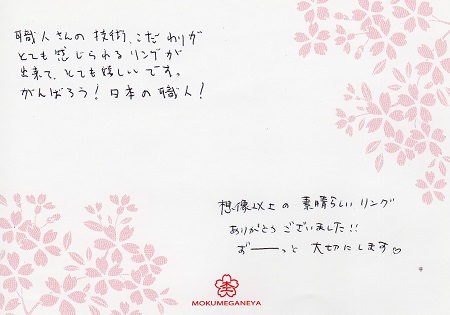 職人さんの技術、こだわりが
とても感じられるリングが
出来て、とても嬉しいです。
がんばろう！日本の職人！
想像以上の素晴らしいリング
ありがとうございました!!
ずーーっと大切にします♡
MOKUMEGANEYA